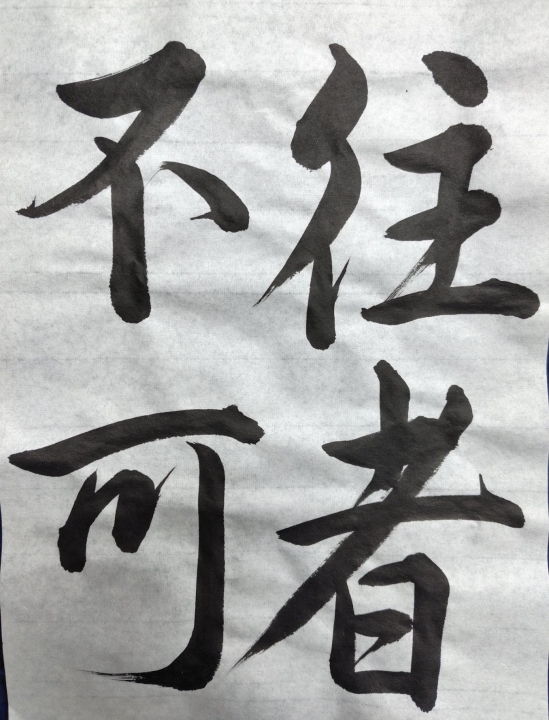 往者
不可